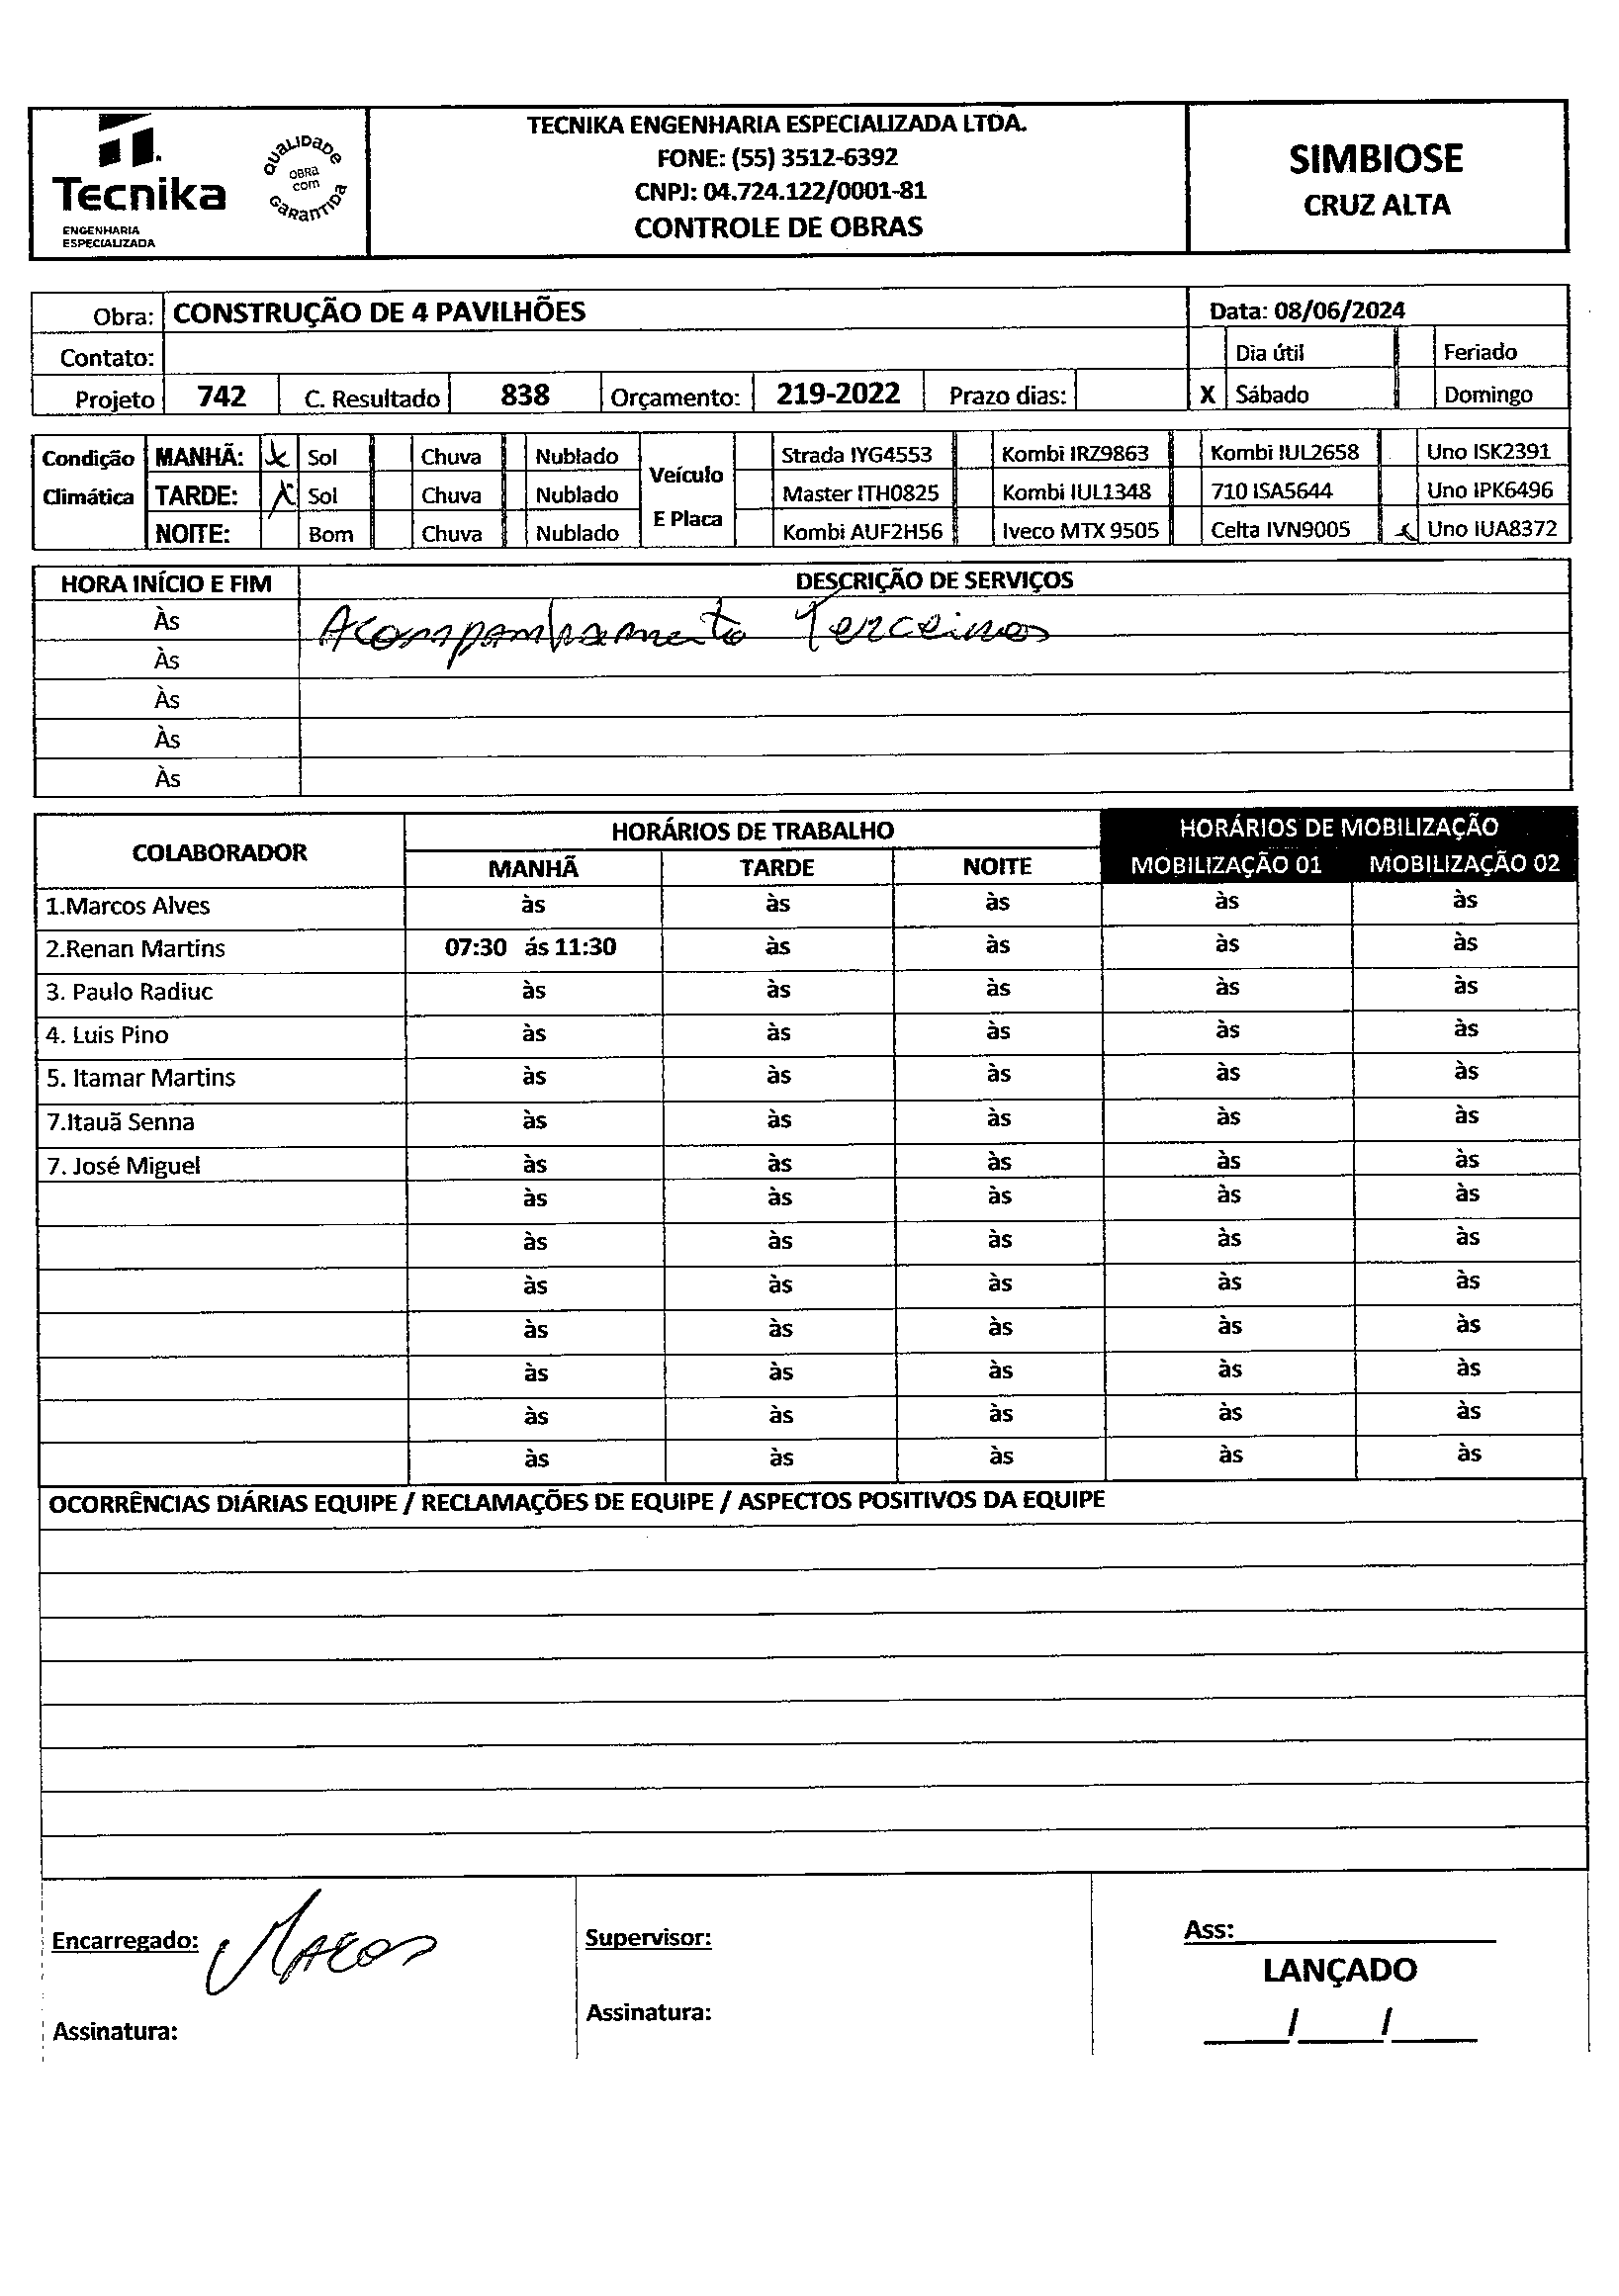 Tecnika
ENGENHARIA
ESPECIALIZADA
QUALIDADE
OBRA
COM
GARANTIDA
TECNIKA ENGENHARIA ESPECIALIZADA LTDA.
FONE: (55) 3512-6392
CNPJ: 04.724.122/0001-81
CONTROLE DE OBRAS
SIMBIOSE
CRUZ ALTA
Obra: CONSTRUÇÃO DE 4 PAVILHÕES Data: 08/06/2024
Contato: Dia útil Feriado
Projeto 742 C. Resultado 838 Orçamento: 219-2022 Prazo dias: X Sábado Domingo
Condição MANHÃ: X Sol Chuva Nublado Veículo Strada IYG4553 Kombi IRZ9863 Kombi IUL2658 Uno ISK2391
Climática TARDE: X Sol Chuva Nublado Master ITH0825 Kombi IUL1348 710 ISA5644 Uno IPK6496
NOITE: Bom Chuva Nublado E Placa Kombi AUF2H56 Iveco MTX 9505 Celta IVN9005 x Uno IUA8372
HORA INÍCIO E FIM DESCRIÇÃO DE SERVIÇOS
Às Acompanhamento Terceiros
Às
Às
Às
Às
COLABORADOR HORÁRIOS DE TRABALHO HORÁRIOS DE MOBILIZAÇÃO
MANHÃ TARDE NOITE MOBILIZAÇÃO 01 MOBILIZAÇÃO 02
1.Marcos Alves às às às às às
2.Renan Martins 07:30 ás 11:30 às às às às
3. Paulo Radiuc às às às às às
4. Luis Pino às às às às às
5. Itamar Martins às às às às às
7.Itauã Senna às às às às às
7. José Miguel às às às às às
às às às às às
às às às às às
às às às às às
às às às às às
às às às às às
às às às às às
às às às às às
OCORRÊNCIAS DIÁRIAS EQUIPE / RECLAMAÇÕES DE EQUIPE / ASPECTOS POSITIVOS DA EQUIPE
Encarregado: Marcos Supervisor: Ass:
LANÇADO
Assinatura: Assinatura: / /